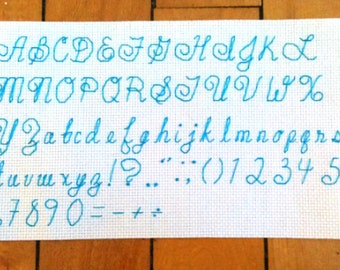 A B C D E F G H I J K L
M N O P Q R S T U V W X
Y Z a b c d e f g h i j k l m n o p q r s
t u v w x y z ! ? . , " : ; ( ) 1 2 3 4 5
7 8 9 0 = - + ÷